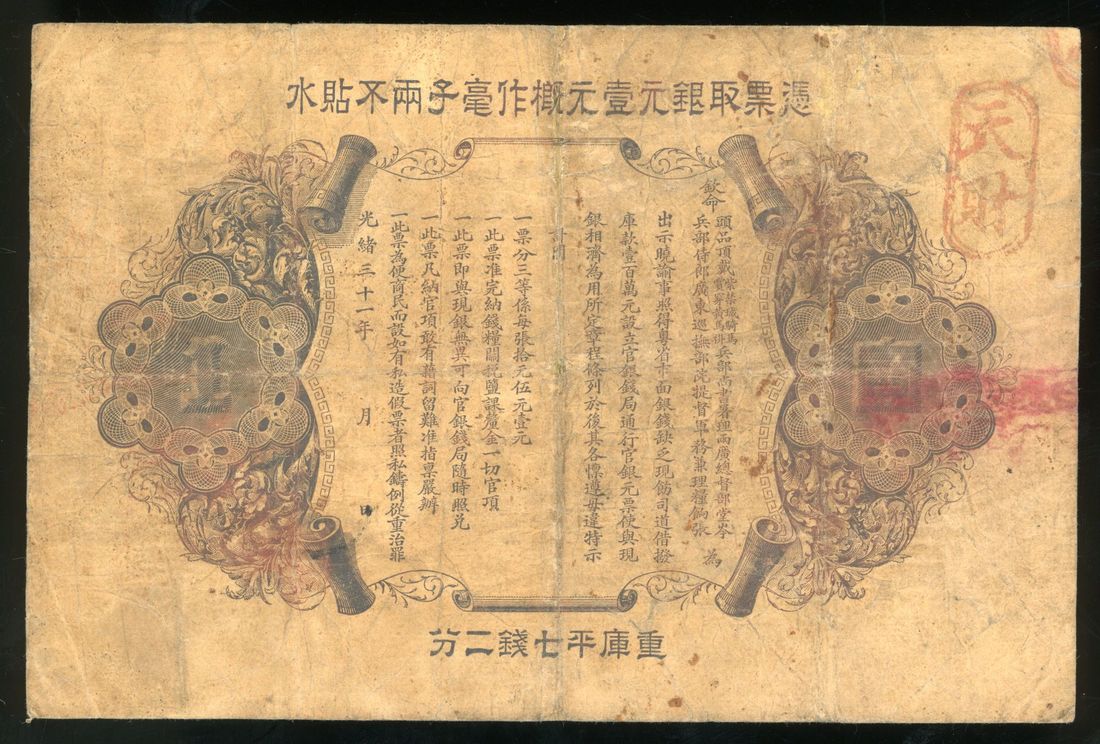 憑票取銀元壹元概作毫子兩不貼水
天財
欽命
頭品頂戴紫禁城騎馬兵部尚書署理兩廣總督部堂岑
兵部侍郎廣東巡撫部院提督軍務兼理糧餉張 為
出示曉諭事照得粵省市面銀錢缺乏現飭司道借撥
庫款壹百萬元設立官銀錢局通行官銀元票使與現
銀相濟為用所定章程條列於後其各懍遵毋違特示
計開
一票分三等係每張拾元伍元壹元
一此票准完納錢糧關稅鹽課釐金一切官項
一此票即與現銀無異可向官銀錢局隨時照兌
一此票凡納官項敢有藉詞留難准指稟嚴辦
一此票為便商民而設如有私造假票者照私鑄例從重治罪
光緒三十一年 月 日
圓
壹
重庫平七錢二分